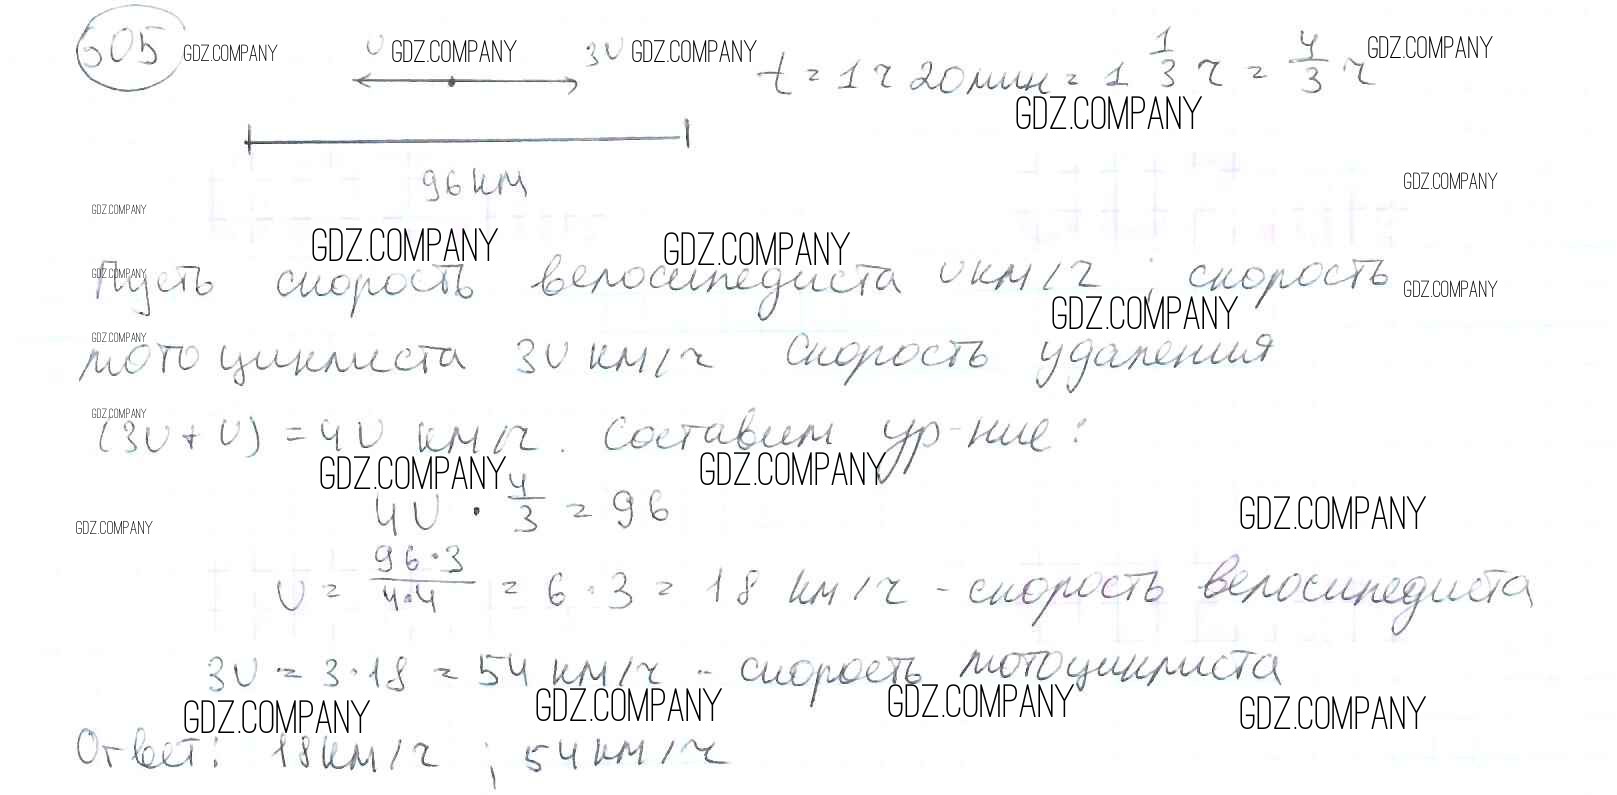 505 GDZ.COMPANY υ GDZ.COMPANY 3υ GDZ.COMPANY t = 1 ч 20 мин = 1 1/3 ч = 4/3 ч GDZ.COMPANY
GDZ.COMPANY
96 км GDZ.COMPANY
GDZ.COMPANY
GDZ.COMPANY GDZ.COMPANY
GDZ.COMPANY
Пусть скорость велосипедиста υ км/ч ; скорость GDZ.COMPANY
GDZ.COMPANY
GDZ.COMPANY
мотоциклиста 3υ км/ч скорость удаления
GDZ.COMPANY
(3υ + υ) = 4υ км/ч. Составим ур-ние:
GDZ.COMPANY GDZ.COMPANY
4υ · 4/3 = 96 GDZ.COMPANY
GDZ.COMPANY
υ = 96·3/4·4 = 6 · 3 = 18 км/ч - скорость велосипедиста
3υ = 3·18 = 54 км/ч - скорость мотоциклиста
GDZ.COMPANY GDZ.COMPANY GDZ.COMPANY GDZ.COMPANY
Ответ: 18 км/ч ; 54 км/ч